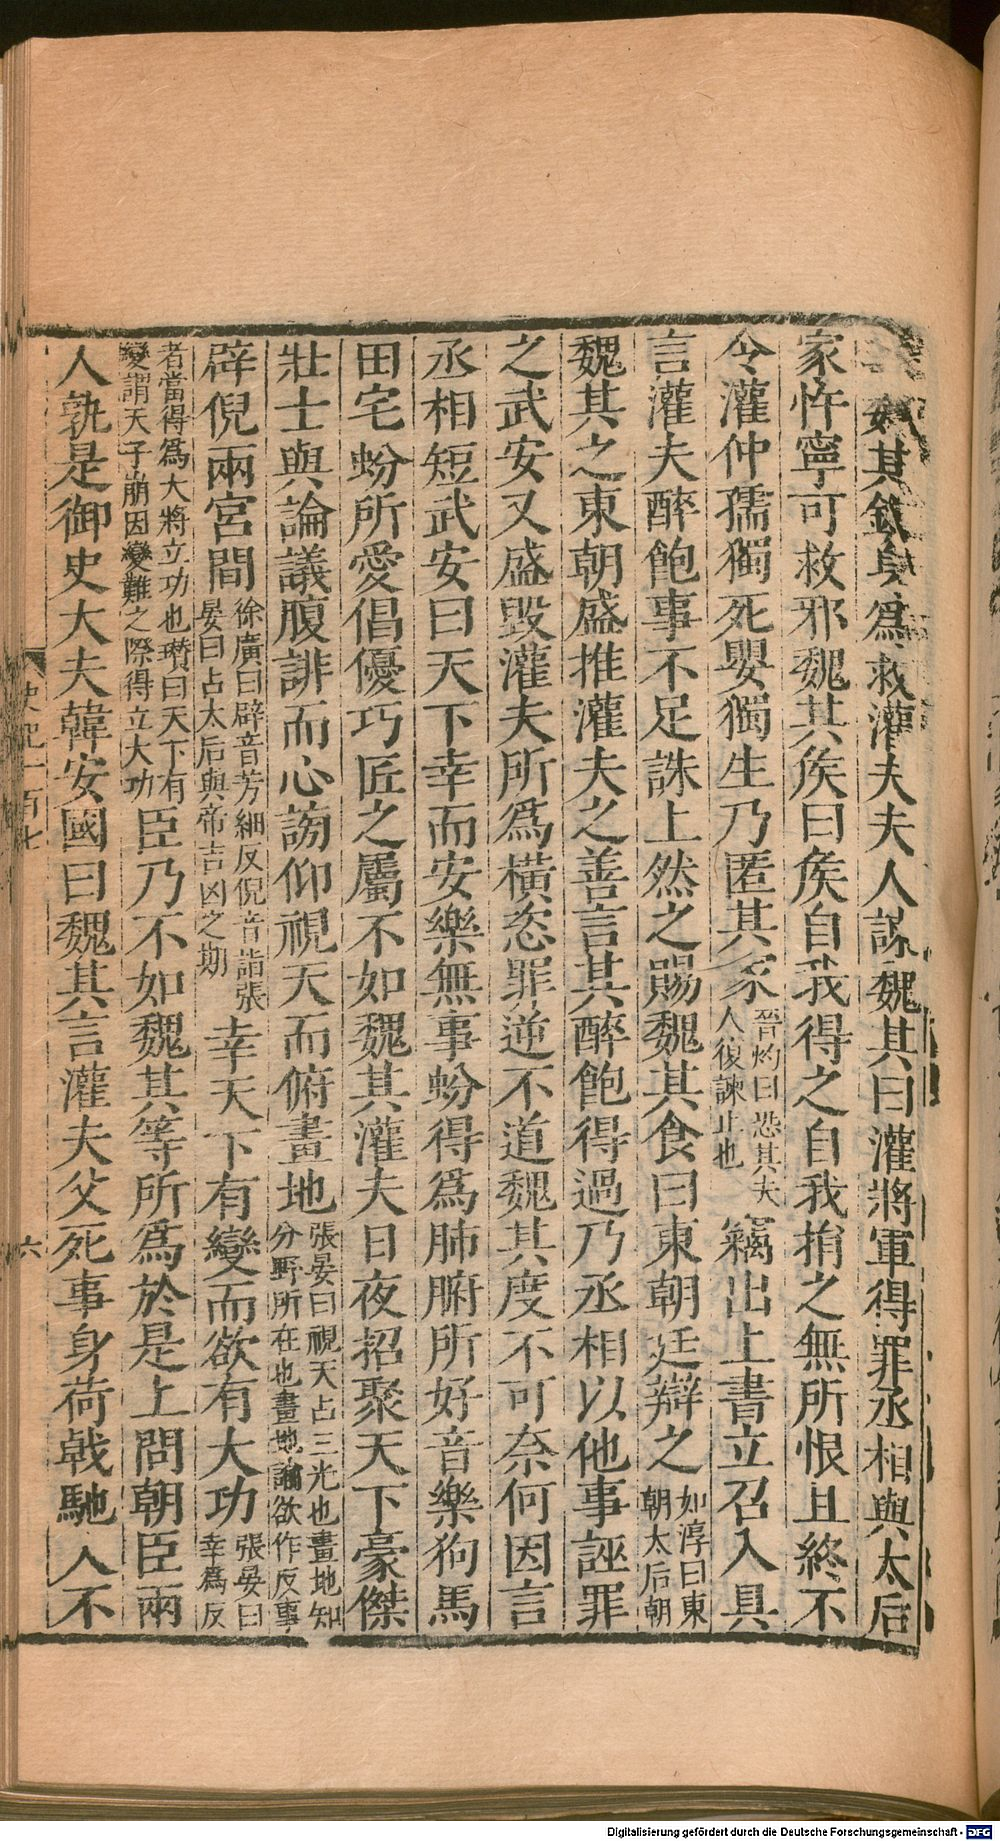 其銳身爲救灌夫夫人諫魏其曰灌將軍得罪丞相與太后
家忤寧可救邪魏其矦曰矦自我得之自我捐之無所恨且終不
令灌仲孺獨死嬰獨生乃匿其家晉灼曰恐其夫人復諫止也竊出上書立召入具
言灌夫醉飽事不足誅上然之賜魏其食曰東朝廷辯之如淳曰東朝太后朝
魏其之東朝盛推灌夫之善言其醉飽得過乃丞相以他事誣罪
之武安又盛毀灌夫所爲橫恣罪逆不道魏其度不可奈何因言
丞相短武安曰天下幸而安樂無事蚡得爲肺腑所好音樂狗馬
田宅蚡所愛倡優巧匠之屬不如魏其灌夫日夜招聚天下豪傑
壯士與論議腹誹而心謗仰視天而俯畫地張晏曰視天占三光也畫地知分野所在也畫地諭欲作反事
辟倪兩宮間徐廣曰辟音芳細反倪音詣張晏曰占太后與帝吉凶之期幸天下有變而欲有大功張晏曰幸爲反
者當得爲大將立功也瓚曰天下有變謂天子崩因變難之際得立大功臣乃不如魏其等所爲於是上問朝臣兩
人孰是御史大夫韓安國曰魏其言灌夫父死事身荷戟馳入不
史記一百七
六
Digitalisierung gefördert durch die Deutsche Forschungsgemeinschaft - DFG